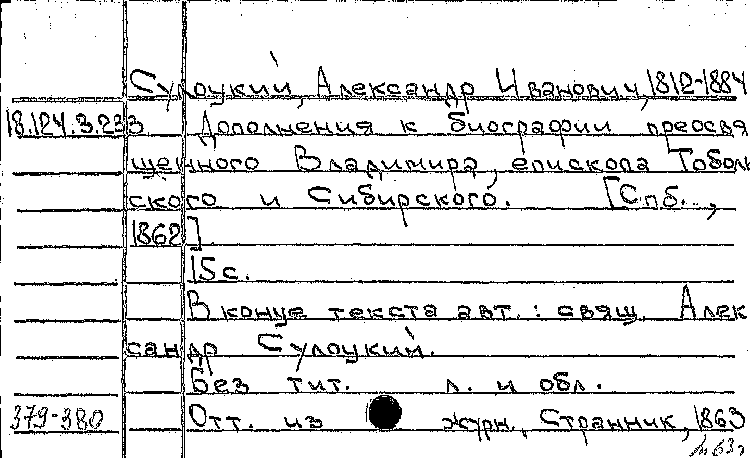 Сулоцкий, Александр Иванович, 1812-1884
18.124.3.233 Дополнения к биографии преосвя
щенного Владимира, епископа Тоболь
ского и Сибирского. [Спб.,
1862].
15 с.
В конце текста авт.: свящ. Алек
сандр Сулоцкий.
Без тит. л. и обл.
379-380 Отт. из журн. Странник, 1863